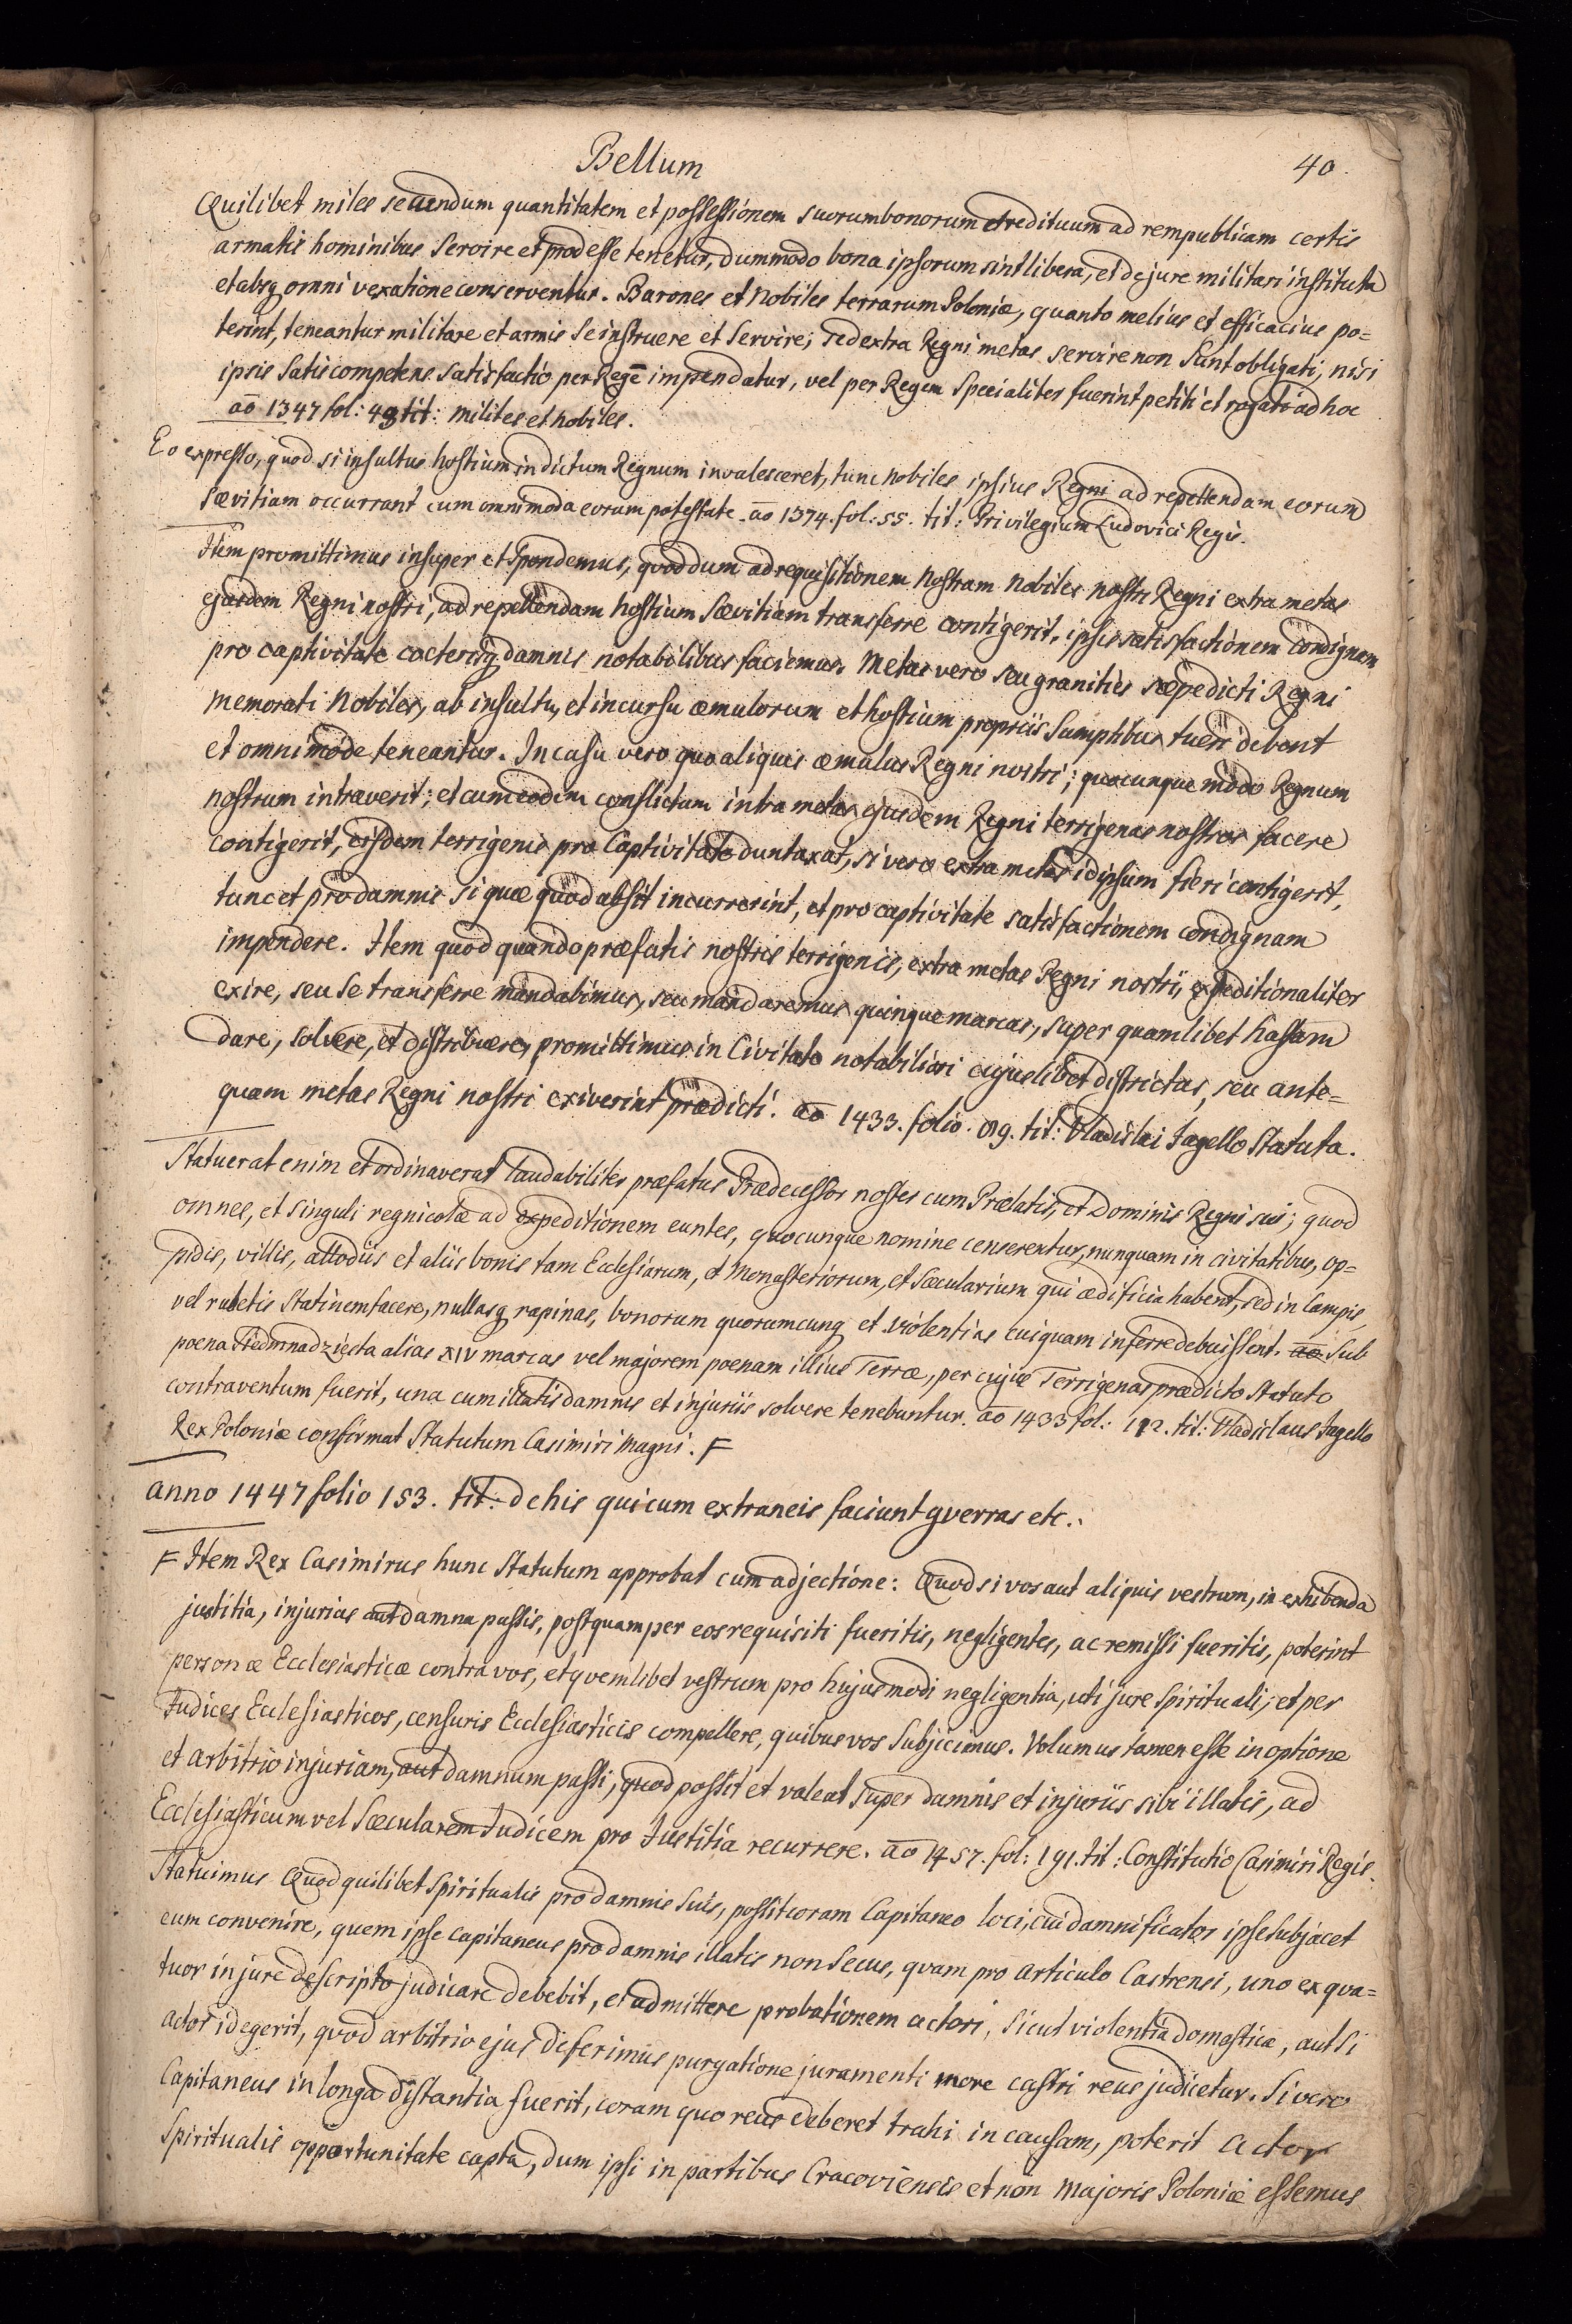 Bellum
40.
Quilibet miles secundum quantitatem et possessionem suorum bonorum et redituum ad rempublicam certis
armatis hominibus servire et prodesse tenetur, dummodo bona ipsorum sint libera, et de jure militari instituta
et absq omni vexatione conserventur. Barones et Nobiles terrarum Poloniæ, quanto melius et efficacius po=
terint, teneantur militare et armis se instruere et servire; sed extra Regni metas servire non sunt obligati, nisi
ipsis satis competens satisfactio per Regē impendatur, vel per Regem specialiter fuerint petiti et rogati ad hoc
aō 1347 fol: 43 tit: milites et nobiles.
Eo expresso, quod si insultus hostium in dictum Regnum invalesceret, tunc nobiles ipsius Regni ad repellendam eorum
sævitiam occurrant cum omnimoda eorum potestate. aō 1374. fol: 55. tit: Privilegium Ludovici Regis.
Item promittimus insuper et spondemus, quod dum ad requisitionem nostram nobiles nostri Regni extra metas
ejusdem Regni nostri, ad repellendam hostium sævitiam transferre contigerit, ipsis satisfactionem condignam
pro captivitate cæterisq damnis notabilibus faciemus. Metas vero seu granities sæpedicti Regni
memorati Nobiles, ab insultu, et incursu æmulorum et hostium propriis sumptibus tueri debent
et omnimode teneantur. In casu vero quo aliquis æmulus Regni nostri; quocunque modo Regnum
nostrum intraverit; et cum eodem conflictum intra metas ejusdem Regni terrigenas nostros facere
contigerit, eisdem terrigenis pro captivitate duntaxat, si vero extra metas id ipsum fieri contigerit,
tunc et pro damnis si quæ quod absit incurrerint, et pro captivitate satisfactionem condignam
impendere. Item quod quando præfatis nostris terrigenis, extra metas Regni nostri, expeditionaliter
exire, seu se transferre mandabimus, seu mandaremus quinque marcas, super quamlibet hastam
dare, solvere, et distribuere, promittimus in Civitate notabiliori cujuslibet districtus, seu ante=
quam metas Regni nostri exiverint prædicti. aō 1433. folio. 89. tit: Vladislai Jagello Statuta.
Statuerat enim et ordinaverat laudabiliter præfatus Prædecessor noster cum Prælatis, et Dominis Regni sui; quod
omnes, et singuli regnicolæ ad expeditionem euntes, quocunque nomine censerentur, nunquam in civitatibus, op=
pidis, villis, allodiis et aliis bonis tam Ecclesiarum, et Monasteriorum, et Sæcularium qui ædificia habent, sed in campis,
vel rubetis stationem facere, nullasq rapinas, bonorum quorumcunq et violentias cuiquam inferre debuissent. aō sub
poena Siedmnadziesta alias XIV marcas vel majorem poenam illius Terræ, per cujus Terrigenas prædicto Statuto
contraventum fuerit, una cum illatis damnis et injuriis solvere tenebuntur. aō 1433 fol: 112. tit: Vladislaus Jagello
Rex Poloniæ confirmat Statutum Casimiri Magni. F
anno 1447 folio 153. tit: de his qui cum extraneis faciunt gverras etc.
F Item Rex Casimirus hunc Statutum approbat cum adjectione: Quod si vos aut aliquis vestrum, in exhibenda
justitia, injurias aut damna passis, postquam per eos requisiti fueritis, negligentes, ac remissi fueritis, poterint
personæ Ecclesiasticæ contra vos, et qvemlibet vestrum pro hujusmodi negligentia, uti jure spirituali; et per
Judices Ecclesiasticos, censuris Ecclesiasticis compellere, quibus vos subjicimus. Volumus tamen esse in optione
et arbitrio injuriam, aut damnum passi, quod possit et valeat super damnis et injuriis sibi illatis, ad
Ecclesiasticum vel Sæcularem Judicem pro Justitia recurrere. aō 1457. fol: 191. tit: Constitutio Casimiri Regis.
Statuimus Quod quilibet spiritualis pro damnis suis, possit coram Capitaneo loci, cui damnificator ipse subjacet
eum convenire, quem ipse capitaneus pro damnis illatis non secus, qvam pro articulo Castrensi, uno ex qva=
tuor in jure descripto judicare debebit, et admittere probationem actori, sicut violentia domesticæ, aut si
actor id egerit, qvod arbitrio ejus deferimus purgatione juramenti more castri reus judicetur. Si vero
Capitaneus in longa distantia fuerit, coram quo reus deberet trahi in causam, poterit actor
Spiritualis opportunitate capta, dum ipsi in partibus Cracoviensis et non Majoris Poloniæ essemus